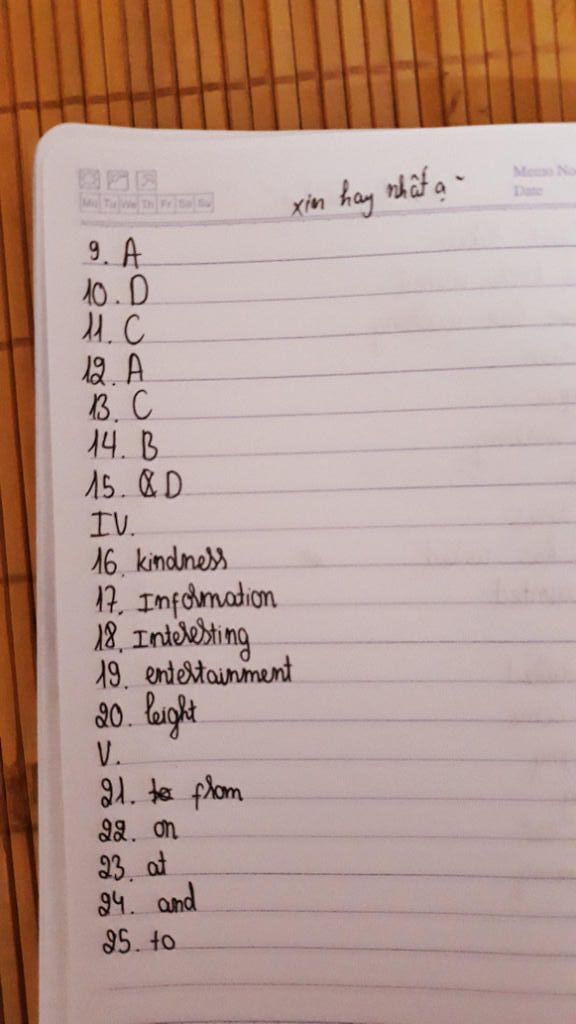 Memo No
Mo Tu We Th Fr Sa Su
Date
xin hay nhất ạ ~
9. A
10. D
11. C
12. A
13. C
14. B
15. D
IV.
16. kindness
17. Information
18. Interesting
19. entertainment
20. leight
V.
21. from
22. on
23. at
24. and
25. to